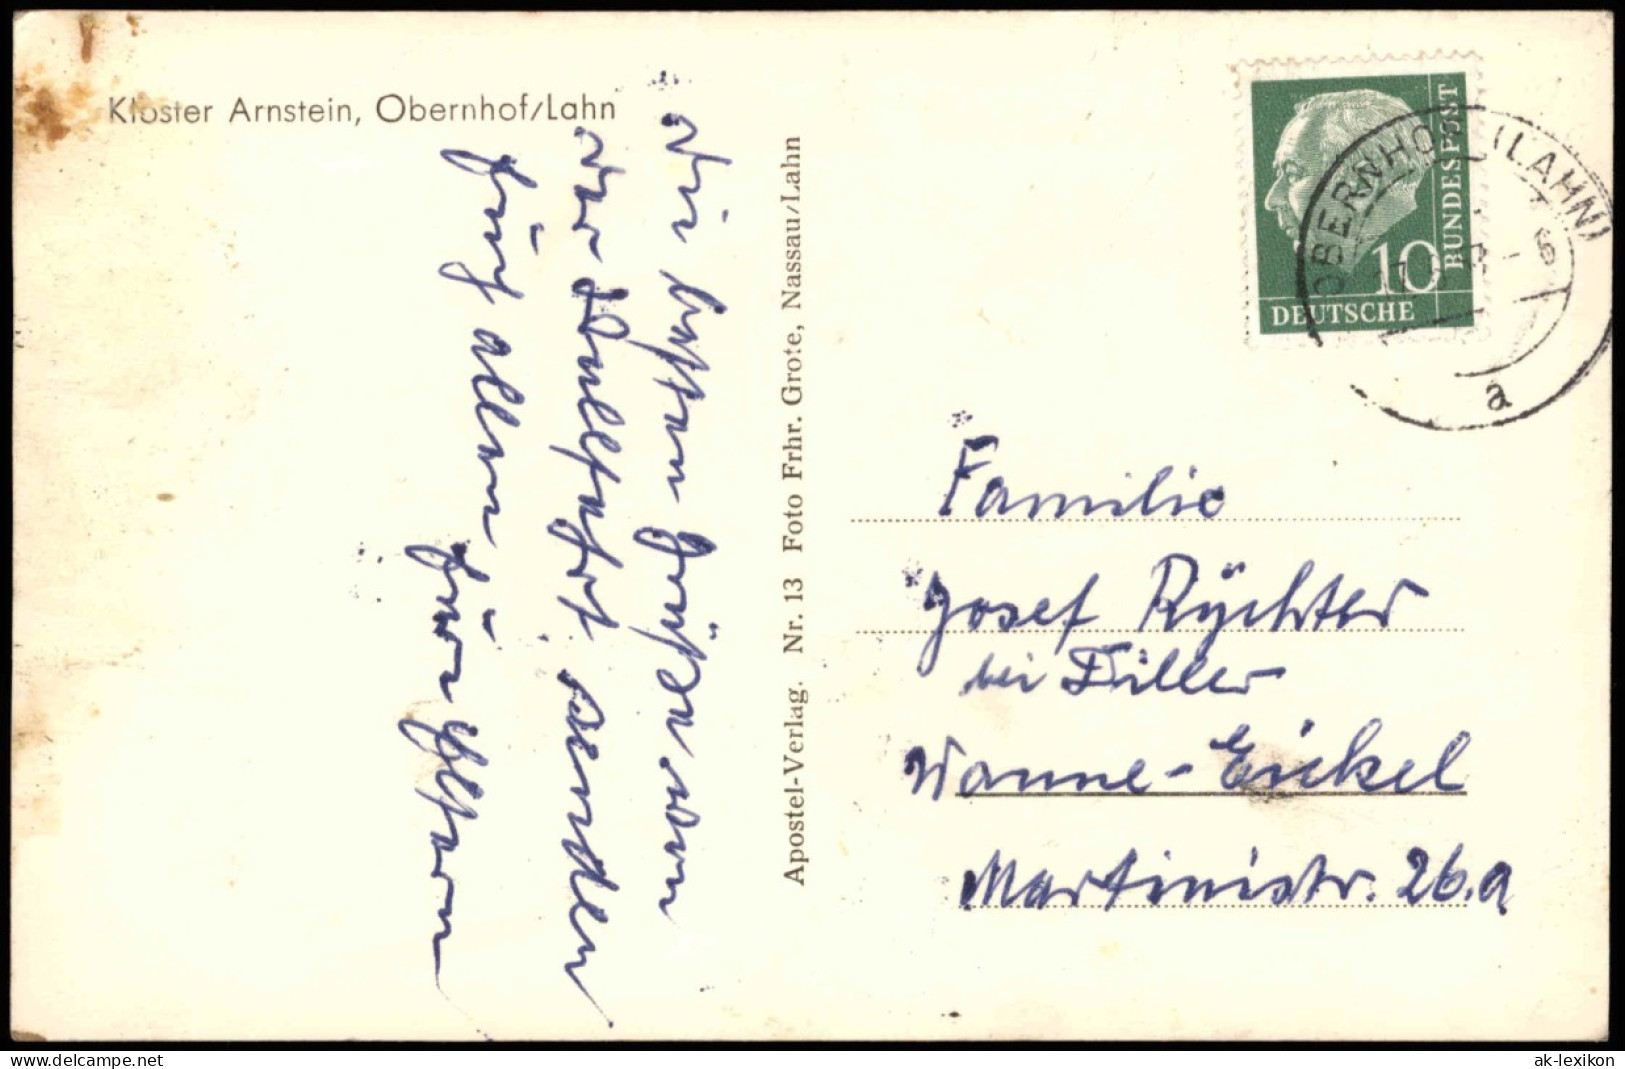 Kloster Arnstein, Obernhof/Lahn
Die besten Grüße von
der Wallfahrt senden
Euch allen
Eure Eltern
Apostel-Verlag. Nr. 13 Foto Frhr. Grote, Nassau/Lahn
DEUTSCHE
BUNDESPOST
10
OBERNHOF (LAHN)
a
Familie
Josef Rychter
bei Filler
Wanne-Eickel
Martinistr. 26.a
www.delcampe.net
ak-lexikon